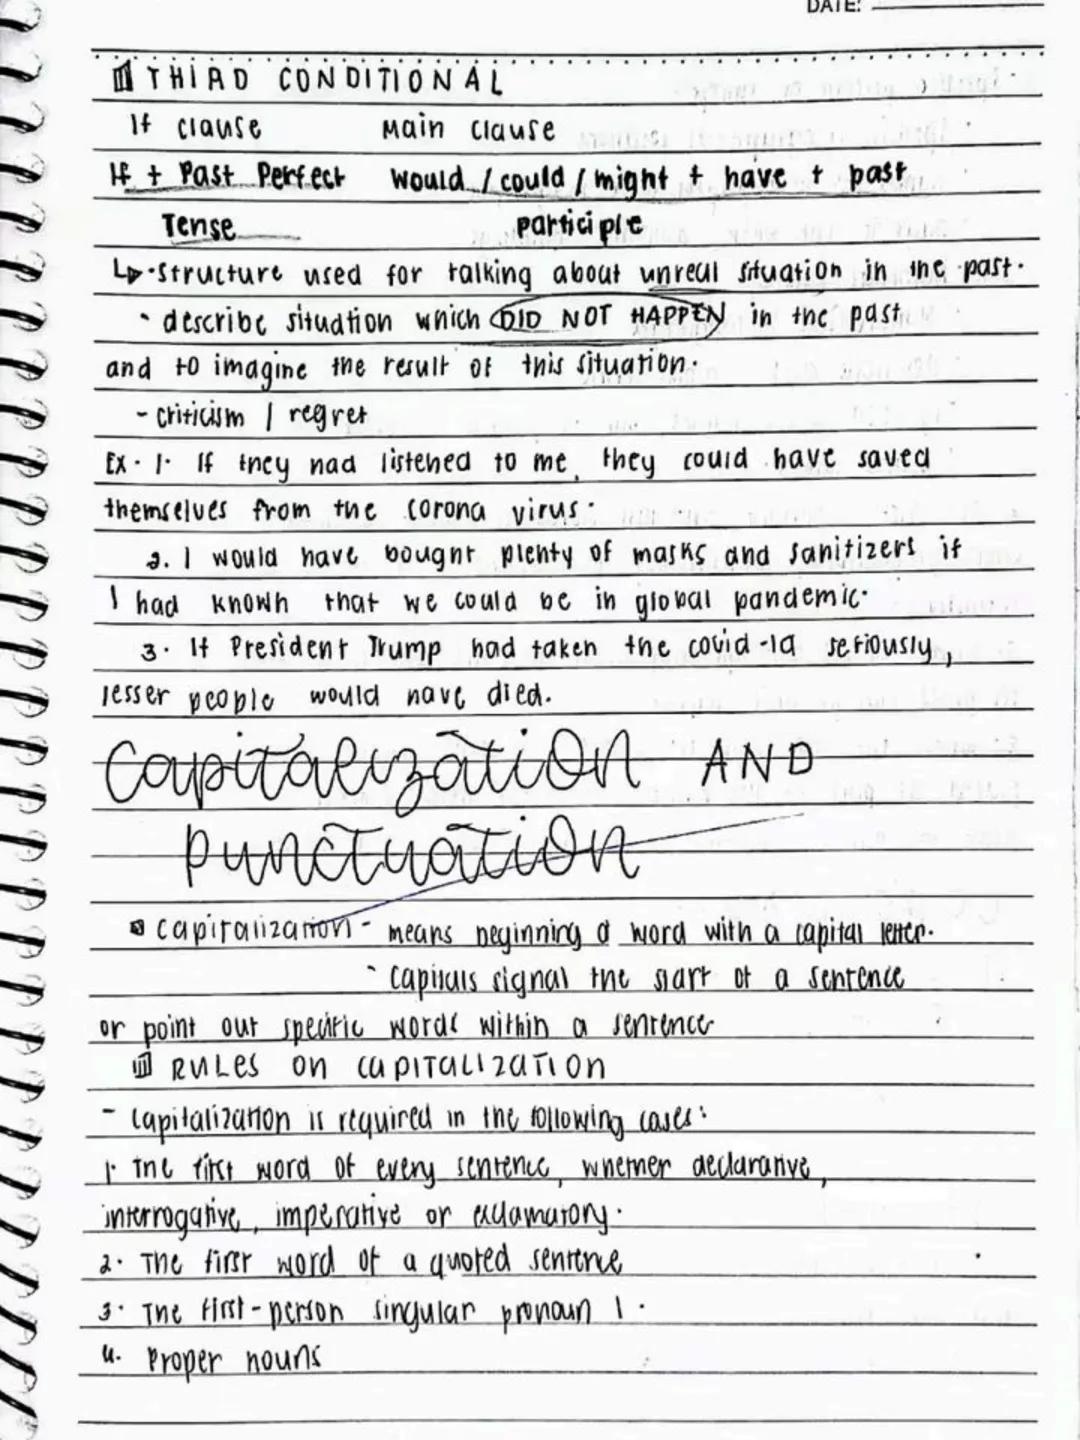 DATE:
THIRD CONDITIONAL
If clause Main clause
If + Past Perfect would / could / might + have + past
Tense participle
structure used for talking about unreal situation in the past.
- describe situation which DID NOT HAPPEN in the past
and to imagine the result of this situation.
- criticism / regret
Ex. 1. If they had listened to me, they could have saved
themselves from the corona virus.
2. I would have bought plenty of masks and sanitizers if
I had known that we could be in global pandemic.
3. If President Trump had taken the covid-19 seriously,
lesser people would have died.
Capitalization AND
punctuation
capitalization - means beginning of word with a capital letter.
- capitals signal the start of a sentence
or point out specific words within a sentence.
RULES ON CAPITALIZATION
- Capitalization is required in the following cases:
1. The first word of every sentence, whether declarative,
interrogative, imperative or exclamatory.
2. The first word of a quoted sentence
3. The first-person singular pronoun I.
4. Proper nouns